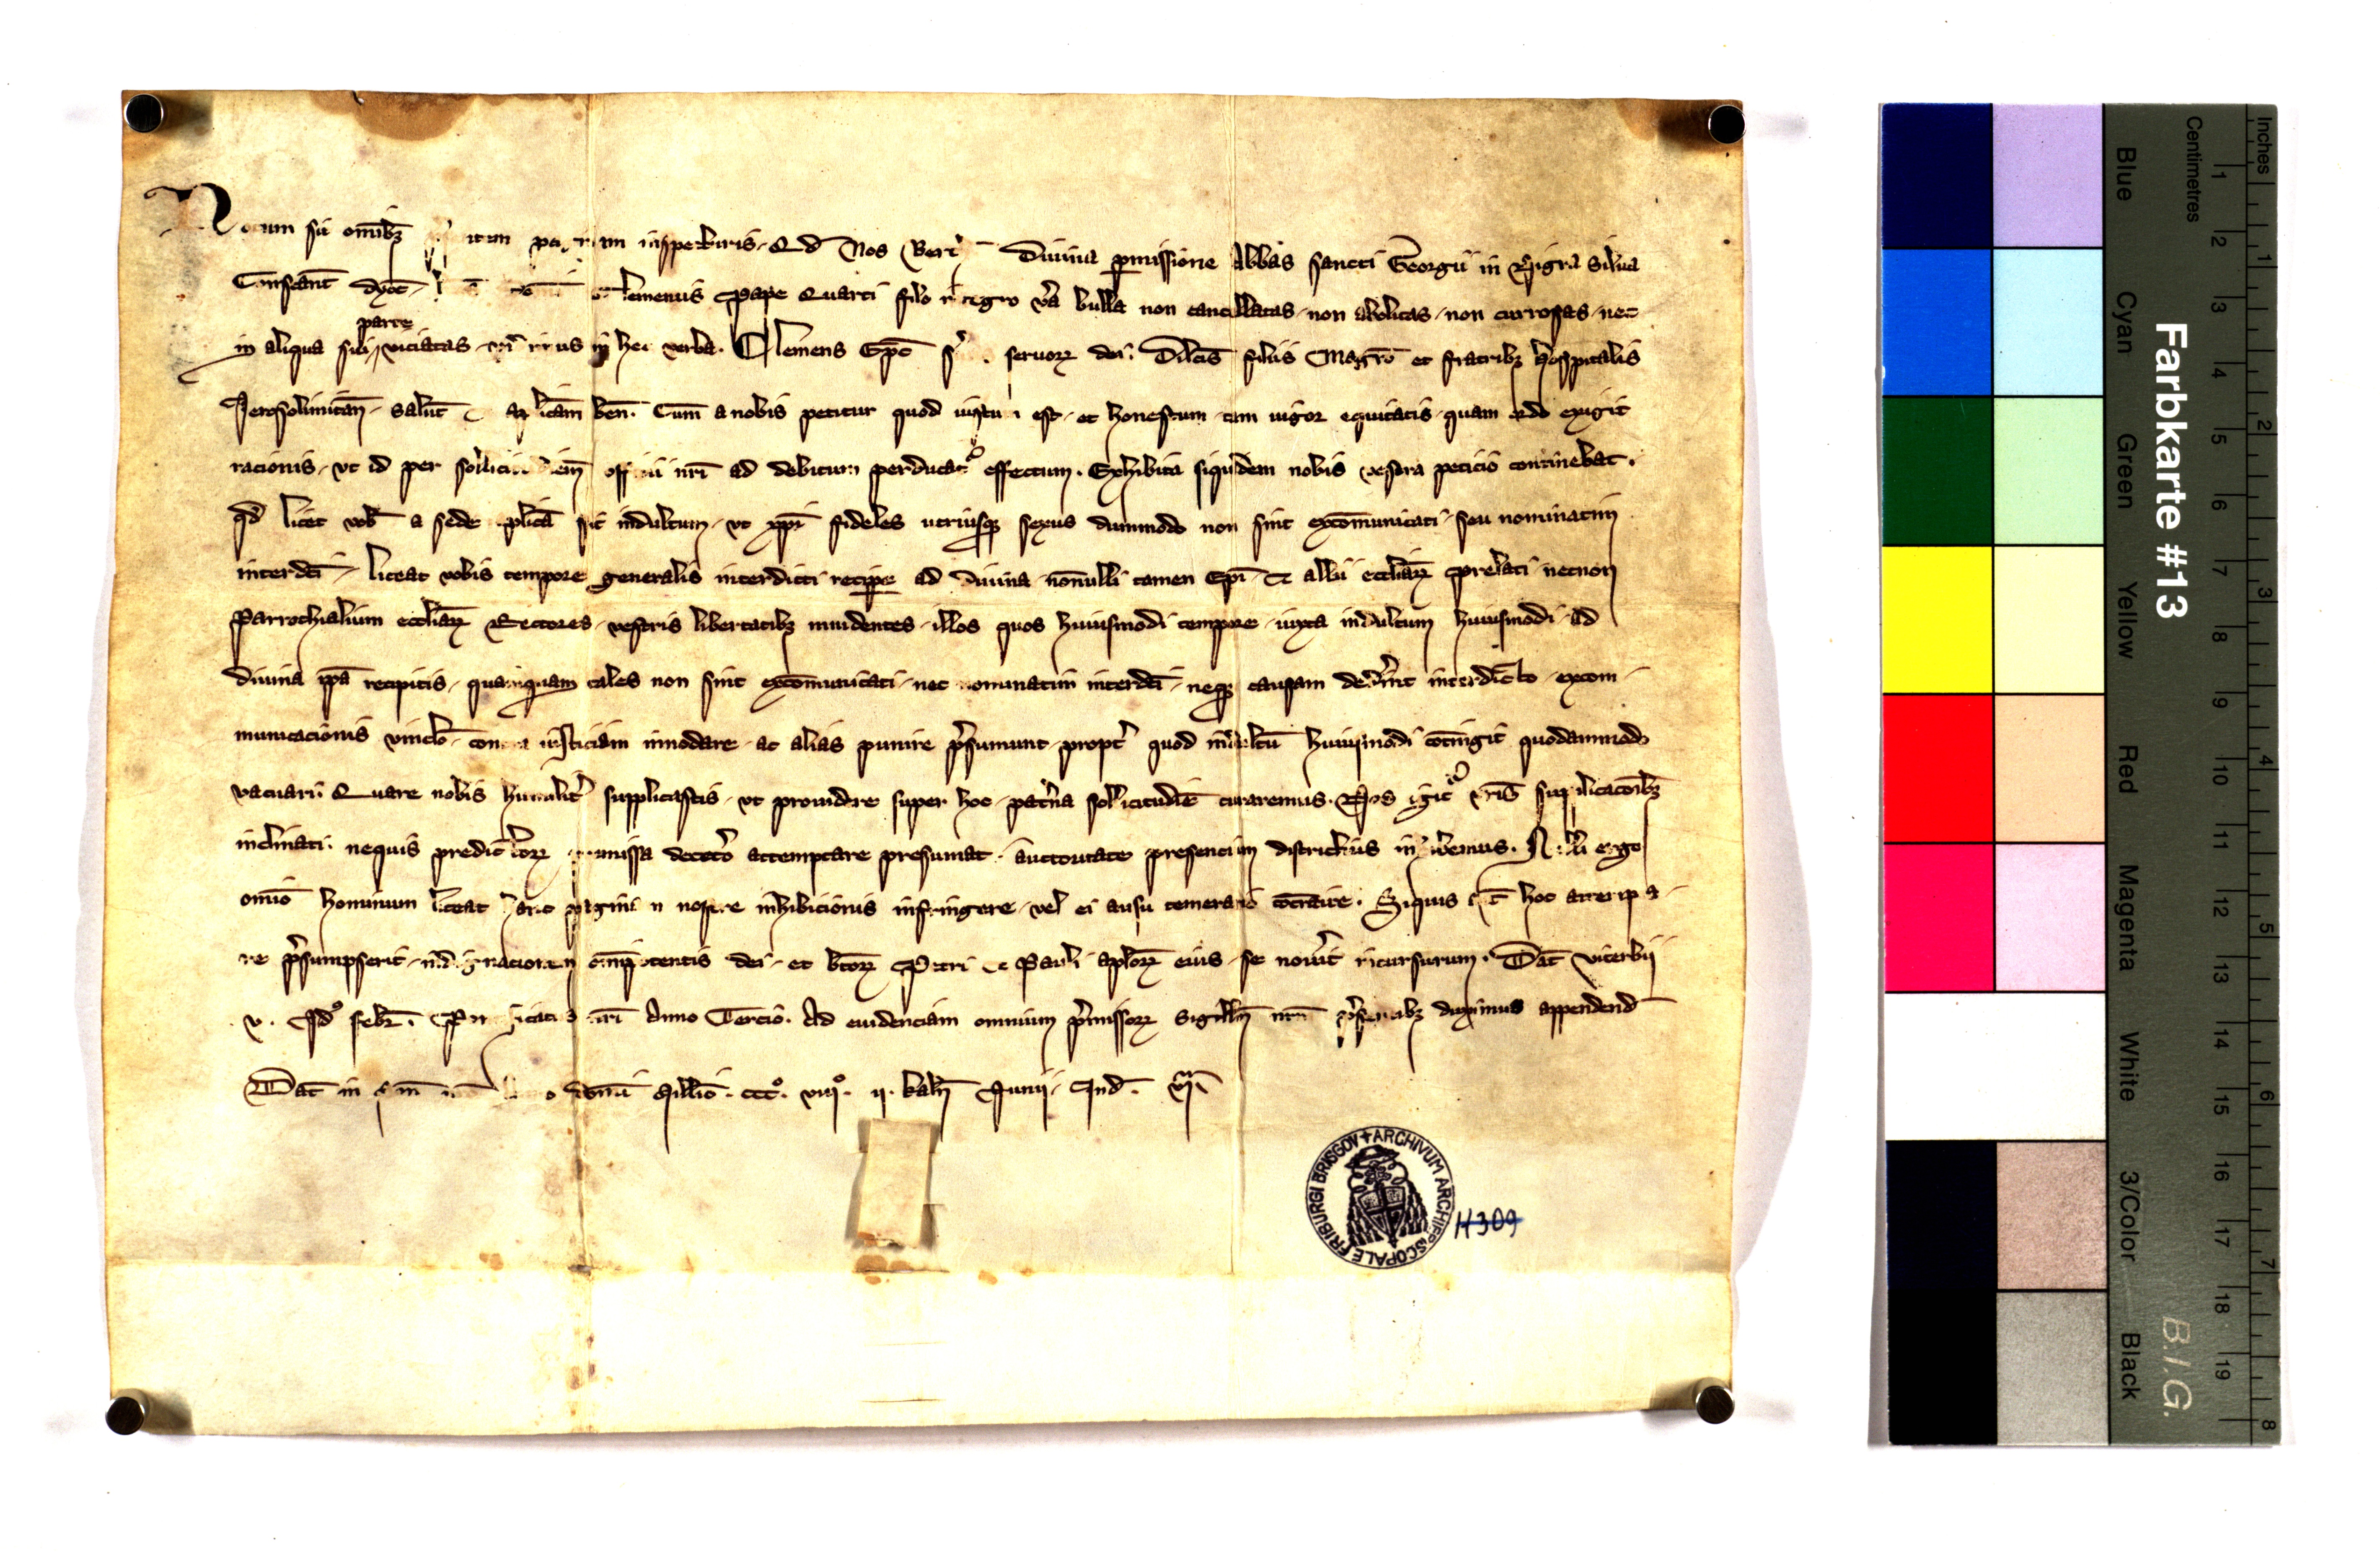 sit omnibꝫ inspecturis · Qd Nos Divina pmissione Abbas sancti Georgii in Nigra Silua
Constant dyoc Clementis Pape Quarti filo integro va bulla non cancellatas · non abolitas · non corrosas · nec
parte
in aliqua sui viciatas in hec verba. Clemens Epc seruorꝝ dei. Dilcis filiis Magrō et fratribꝫ hospitalis
Jerosolimitan · Salut & aplicam ben. Cum a nobis petitur quod iustum est · et honestum · tam uigor equitatis · quam ordo exigit
racionis · vt id per officii nri ad debitum perducatᵒ effectum. Exhibita siquidem nobis vestra peticio continebat ·
qd licet vob a sede aplica sit indultum · vt xpi fideles utriusqꝫ sexus dummodo non sint excōmunicati · seu nominatim
interdci · liceat vobis tempore generalis interdicti recipere ad diuina · nōnulli tamen Epi & alii eccliarꝝ prelati necnon
Parrochialium eccliarꝝ Rectores · vestris libertatibꝫ inuidentes · illos quos huiusmodi tempore · iuxta indultum huiusmodi · ad
diuina ipa recipitis · quamquam tales non sint excōmunicati · nec nominatim interdci · neqꝫ causam dedint interdicto · excom ·
municacionis vinclo · contra iusticiam innodare · ac alias punire psumunt · propt quod indultū huiusmodi cōtingit quodammodo
vacuari. Quare nobis humilit supplicastis · vt prouidere super hoc · patna sollicitudīe curaremus. Nos igit vris supplicacōibꝫ
inclinati. nequis predictorꝝ premissa decetō attemptare presumat · auctoritate presencium districtius inhibemus. Nulli ergo
omīo hominum liceat hanc paginam nostre inhibicionis infringere · vel ei ausu temerario cōtraire. Siquis aut hoc attempta ·
re psumpserit · indignacionem omīpotentis dei · et btorꝝ Petri & Pauli aplorꝝ eius · se nouit incursurum. Dat Viterbii
v. Idᵒ febr. Pontificatus nri Anno Tercio. Ad euidenciam omnium pmissorꝝ Sigillum nrm psentibꝫ duximus appendend
Dat in dom̄i Millīo. cccᵒ. viiiᵒ. ii. kaln Junii. Ind. viᵃ.
ARCHIVUM ARCHIEPISCOPALE FRIBURGI BRISGOV +
H309
Farbkarte #13
B.I.G.
Blue Cyan Green Yellow Red Magenta White 3/Color Black
Centimetres 1 2 3 4 5 6 7 8 9 10 11 12 13 14 15 16 17 18 19
Inches 1 2 3 4 5 6 7 8